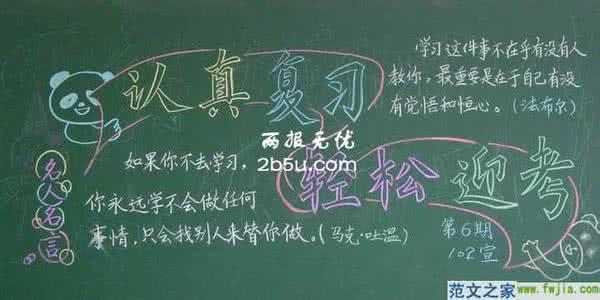 认真复习
轻松迎考
学习这件事不在乎有没有人
教你，最重要是在于自己有没
有觉悟和恒心。（法布尔）
名人名言
如果你不去学习，
你永远学不会做任何
事情，只会找别人来替你做。（马克·吐温）
第6期
102宣
两报无忧
2b5u.com
范文之家
www.fwjia.com